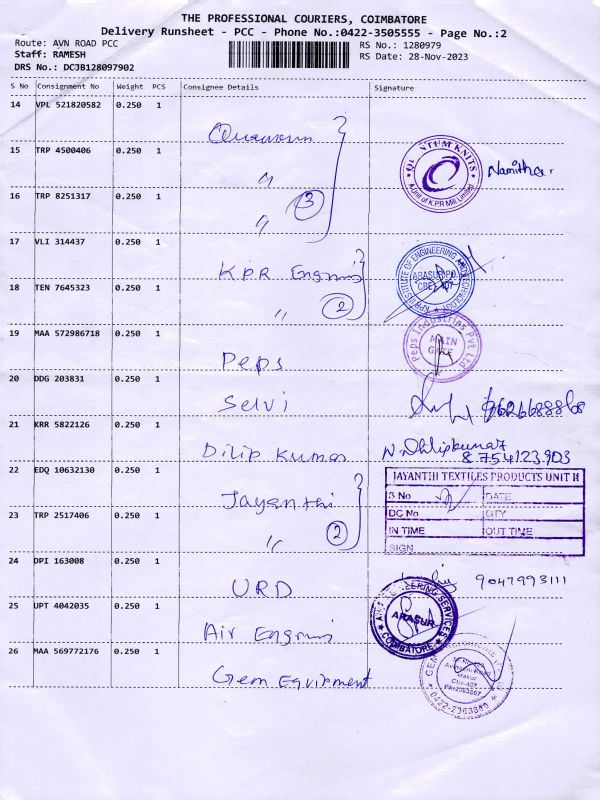 THE PROFESSIONAL COURIERS, COIMBATORE
Delivery Runsheet - PCC - Phone No.:0422-3505555 - Page No.:2
Route: AVN ROAD PCC
RS No.: 1280979
Staff: RAMESH
RS Date: 28-Nov-2023
DRS No.: DCJB128097902
S No Consignment No Weight PCS Consignee Details Signature
14 VPL 521820582 0.250 1
15 TRP 4500406 0.250 1
QUANTUM KNITS
A Unit of K.P.R Mill Limited
Namitha.
16 TRP 8251317 0.250 1
3
17 VLI 314437 0.250 1
KPR Enginis
KPR INSTITUTE OF ENGINEERING AND TECHNOLOGY
ARASUR PO.
CBE-407
18 TEN 7645323 0.250 1
" 2
19 MAA 572986718 0.250 1
Peps
Peps Industries Pvt Ltd
MAIN
GATE
20 DDG 203831 0.250 1
Selvi
21 KRR 5822126 0.250 1
Dilip Kumar
N. Dhlipkumar
8754123903
22 EDQ 10632130 0.250 1
Jayanthi
JAYANTHI TEXTILES PRODUCTS UNIT II
S No DATE
DC No QTY
IN TIME OUT TIME
SIGN
23 TRP 2517406 0.250 1
" 2
24 DPI 163008 0.250 1
URD
9047993111
25 UPT 4042035 0.250 1
Air Enginis
ENGINEERING SERVICES
ARASUR
COIMBATORE
26 MAA 569772176 0.250 1
Gem Equipment